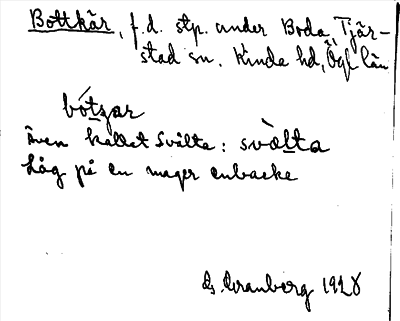 Bottkär, f.d. stp. under Boda, Tjär-
stad sn. Kinda hd, Ögl län
bótzar
Även kallet Svälta: svòlta
Låg på en mager enbacke
G. Granberg 1928